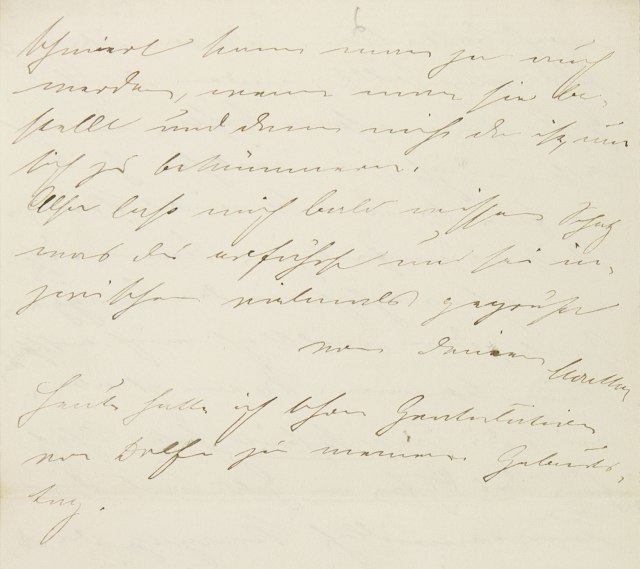 kann man ja auch
werden, wenn man sie be-
stellt und dann nicht da ist, um
sich zu bekümmern.
Also laß mich bald wissen Schatz
was du erfährst und sei in-
zwischen vielmals gegrüßt
von Deinem
Heute hatte ich schon Gratulation
von zu meinem Geburts-
tag.